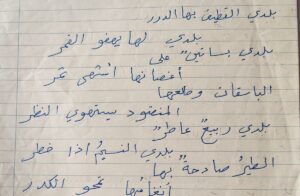 بلدي القطيف بها الدرر
بلدي لها يهفو القمر
بلدي بساتين على
أغصانها اشتهى ثمر
الباسقات وطلعها
المنضود يستهوي النظر
بلدي ربيع عاطر
بلدي النسيم اذا خطر
الطير صادحة بها
أنغامها تمحو الكدر